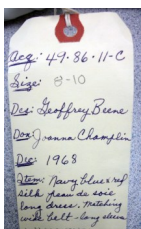 Acq: 49-86-11-C
Size: 8-10
Des: Geoffrey Beene
Don: Joanna Champlin
Dec: 1968
Item: Navy blue & red
silk peau de soie
long dress. Matching
wide belt - long sleeve